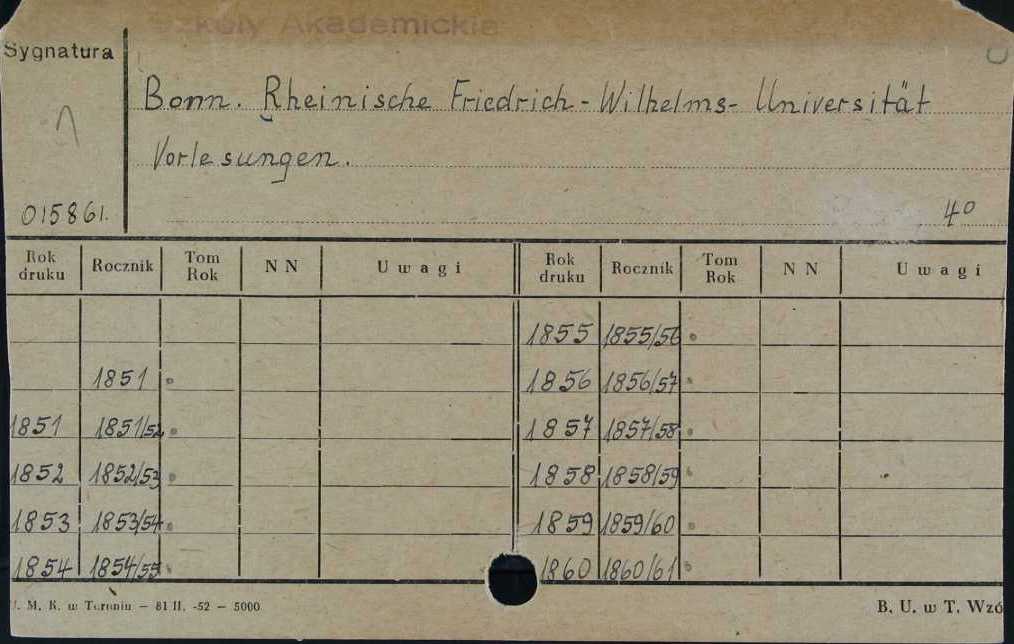 Szkoły Akademickie
Sygnatura
Bonn. Rheinische Friedrich-Wilhelms-Universität
Vorlesungen.
015861. 4⁰
Rok druku Rocznik Tom Rok N N Uwagi Rok druku Rocznik Tom Rok N N Uwagi
1855 1855/56
1851 1856 1856/57
1851 1851/52 1857 1857/58
1852 1852/53 1858 1858/59
1853 1853/54 1859 1859/60
1854 1854/55 1860 1860/61
U. M. K. w Toruniu — 81 II. -52 — 5000 B. U. w T. Wzó